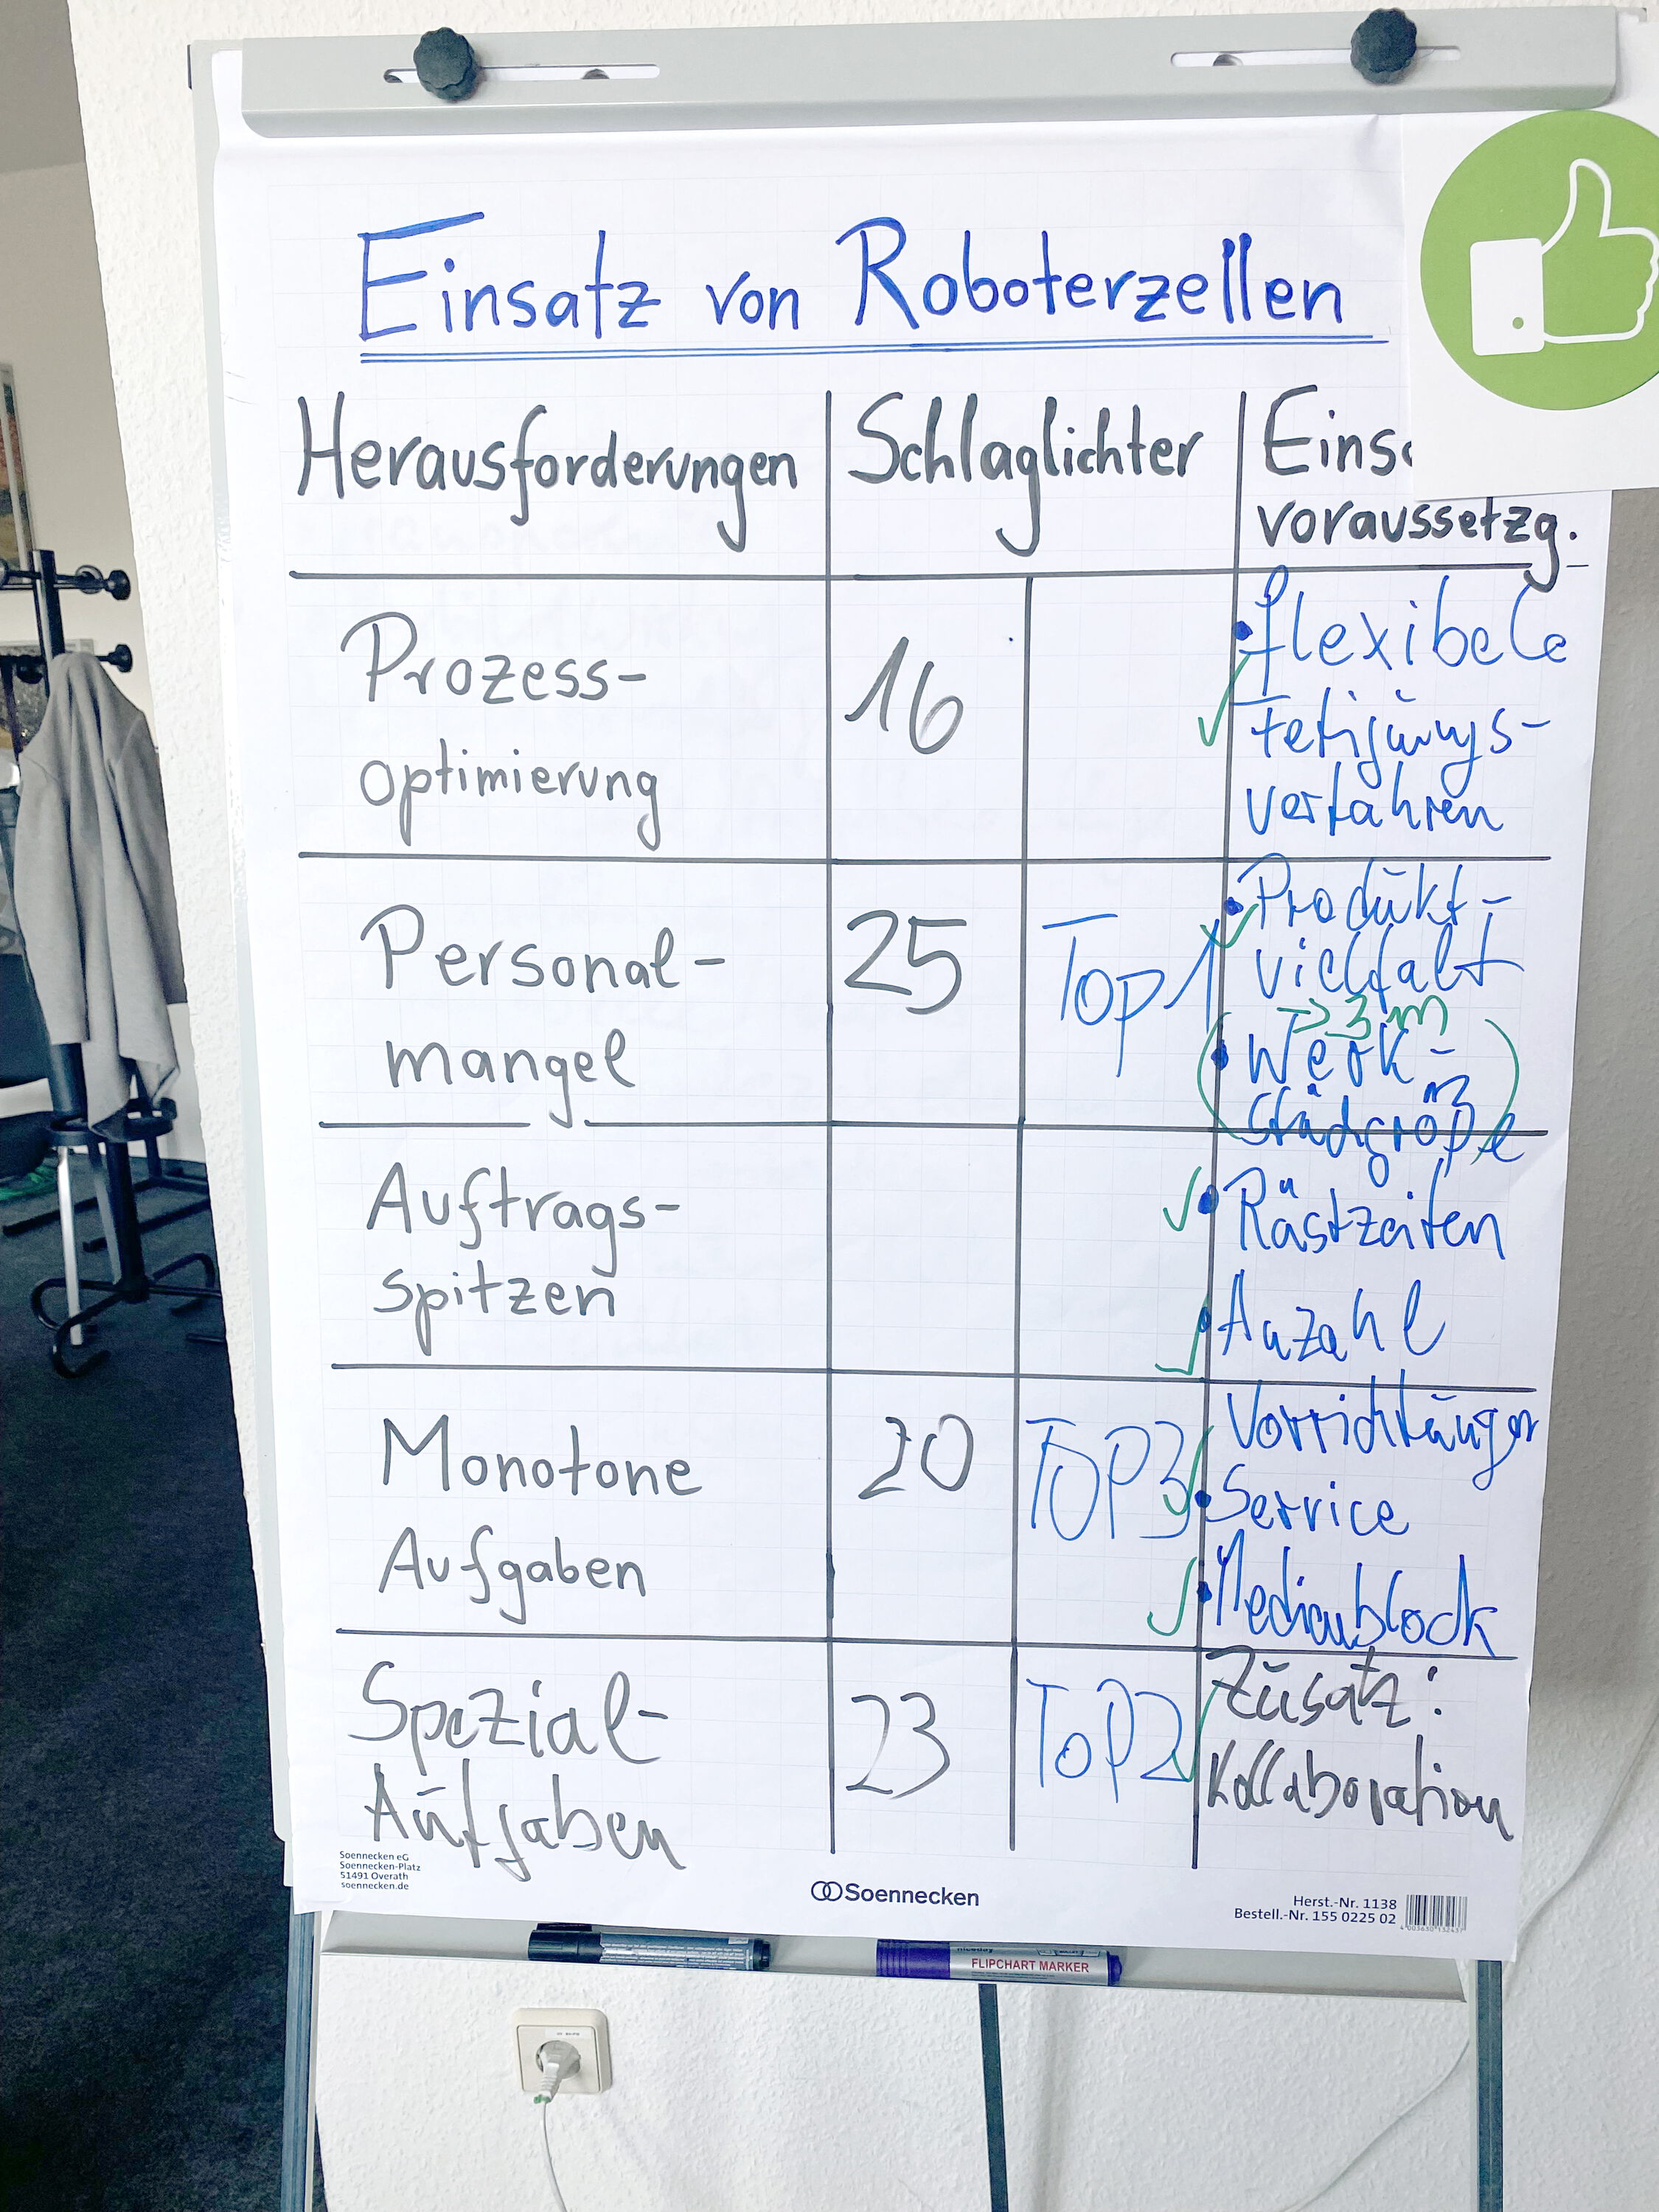 Einsatz von Roboterzellen
Herausforderungen
Schlaglichter
voraussetzg.
Prozess-
optimierung
16
flexibele
Fetigungs-
verfahren
Personal-
mangel
25
Top 1
Produkt-
vielfalt
> 3 m
Werk-
Auftrags-
spitzen
Rüstzeiten
Anzahl
Monotone
Aufgaben
20
TOP3
Vorrichtungen
Service
Medienblock
Spezial-
Aufgaben
23
ToP2
Zusatz:
Kollaboration
Soennecken eG
Soennecken-Platz
51491 Overath
soennecken.de
Soennecken
Herst.-Nr. 1138
Bestell.-Nr. 155 0225 02
FLIPCHART MARKER